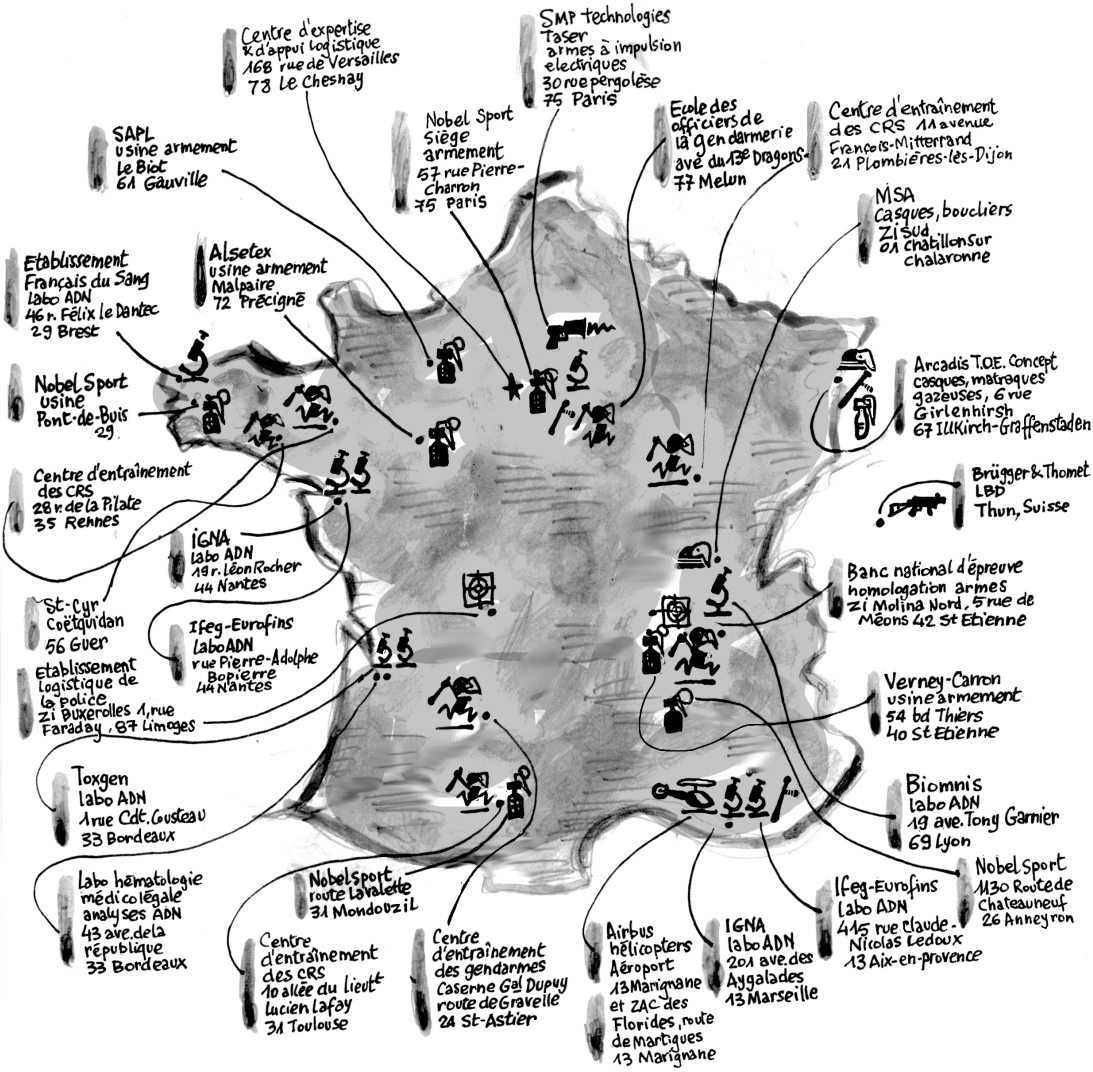 Centre d'expertise
& d'appui logistique
168 rue de Versailles
78 Le Chesnay
SMP technologies
Taser
armes à impulsion
electriques
30 rue pergolèse
75 Paris
SAPL
usine armement
Le Biot
61 Gauville
Nobel Sport
siège
armement
57 rue Pierre-
Charron
75 Paris
Ecole des
officiers de
la gendarmerie
ave du 13e Dragons
77 Melun
Centre d'entraînement
des CRS 11 avenue
François-Mitterrand
21 Plombières-lès-Dijon
MSA
casques, boucliers
Zi Sud
01 Chatillon sur
Chalaronne
Etablissement
Français du Sang
labo ADN
46 r. Félix le Dantec
29 Brest
Alsetex
usine armement
Malpaire
72 Précigné
Nobel Sport
usine
Pont-de-Buis
29
Arcadis T.O.E. Concept
casques, matraques
gazeuses, 6 rue
Girlenhirsh
67 Illkirch-Graffenstaden
Centre d'entraînement
des CRS
28 r. de la Pilate
35 Rennes
Brügger & Thomet
LBD
Thun, Suisse
IGNA
labo ADN
19 r. Léon Rocher
44 Nantes
St-Cyr
Coëtquidan
56 Guer
Ifeg-Eurofins
labo ADN
rue Pierre-Adolphe
Bopierre
44 Nantes
Banc national d'épreuve
homologation armes
Zi Molina Nord, 5 rue de
Méons 42 St Etienne
Etablissement
logistique de
la police
Zi Buxerolles 1, rue
Faraday, 87 Limoges
Verney-Carron
usine armement
54 bd Thiers
40 St Etienne
Toxgen
labo ADN
1 rue Cdt. Cousteau
33 Bordeaux
Biomnis
labo ADN
19 ave. Tony Garnier
69 Lyon
Labo hématologie
médicolégale
analyses ADN
43 ave. de la
république
33 Bordeaux
Nobelsport
route Lavalette
31 Mondouzil
Nobel Sport
1130 Route de
Chateauneuf
26 Anneyron
Ifeg-Eurofins
labo ADN
415 rue Claude-
Nicolas Ledoux
13 Aix-en-provence
Centre
d'entraînement
des CRS
10 allée du lieutt
Lucien Lafay
31 Toulouse
Centre
d'entraînement
des gendarmes
Caserne Gal Dupuy
route de Gravelle
24 St-Astier
Airbus
hélicopters
Aéroport
13 Marignane
et ZAC des
Florides, route
de Martigues
13 Marignane
IGNA
labo ADN
201 ave. des
Aygalades
13 Marseille